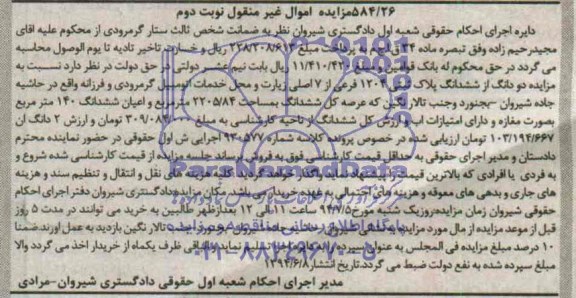 ۵۸۴/۲۶مزایده اموال غیر منقول نوبت دوم
دایره اجرای احکام حقوقی شعبه اول دادگستری شیروان نظر به ضمانت شخص ثالث ستار گرمرودی از محکوم علیه اقای
مجیدرحیم زاده وفق تبصره ماده ۳۴ ق ا م به پرداخت مبلغ ۲۲۸/۲۰۸/۶۱۳ ریال و خسارت تاخیر تادیه تا یوم الوصول محاسبه
می گردد در حق محکوم له بانک قوامین و مبلغ ۱۱/۴۱۰/۴۲۰ ریال بابت نیم عشر دولتی در حق دولت در نظر دارد نسبت به
مزایده دو دانگ از ششدانگ پلاک ثبتی ۱۲۰۴ فرعی از ۷ اصلی زیارت و محل خدمات اتومبیل گرمرودی و فرزانه واقع در حاشیه
جاده شیروان -بجنورد وجنب تالار نگین که عرصه کل ششدانگ بمساحت ۲۲۰۵/۸۴ مترمربع و اعیان ششدانگ ۱۴۰ متر مربع
بصورت مغازه و دارای امتیازات اب و ارزش کل ششدانگ از ناحیه کارشناسی به مبلغ تومان و ارزش ۲ دانگ ان
۱۰۳/۱۹۴/۶۶۷ تومان ارزیابی شده در خصوص پرونده کلاسه شماره ۹۳۰۵۷۷ اجرایی ش اول حقوقی در حضور نماینده محترم
دادستان و مدیر اجرای حقوقی به حداقل قیمت کارشناسی فوق به فروش برساند جلسه مزایده از قیمت کارشناسی شده شروع و
به فردی یا افرادی که بالاترین قیمت را پیشنهاد نماید واگذار خواهد گردید کلیه هزینه های نقل و انتقال و تنظیم سند و هزینه
های جاری و بدهی های معوقه و هزینه های احتمالی به عهده خریدار می باشد. مکان مزایده:دادگستری شیروان دفتر اجرای احکام
حقوقی شیروان زمان مزایده:روزیک شنبه مورخ ۹۴/۷/۵ ساعت ۱۱ الی ۱۲ بعدازظهر طالبین به خرید می توانند در مدت ۵ روز
قبل از موعد مزایده از مال مورد مزایده به نشانی شیروان تالار نگین بازدید به عمل اورند.ضمنا
۱۰ درصد مبلغ مزایده فی المجلس به عنوان سپرده از تسلیم نماید و مابقی ظرف یکماه از خریدار اخذ می گردد والا
مبلغ سپرده شده به نفع دولت ضبط می گردد.تاریخ انتشار۱۳۹۴/۶/۸
مدیر اجرای احکام شعبه اول حقوقی دادگستری شیروان-مرادی
۰۲۱-۸۸۳۴۹۶۷۰-۵